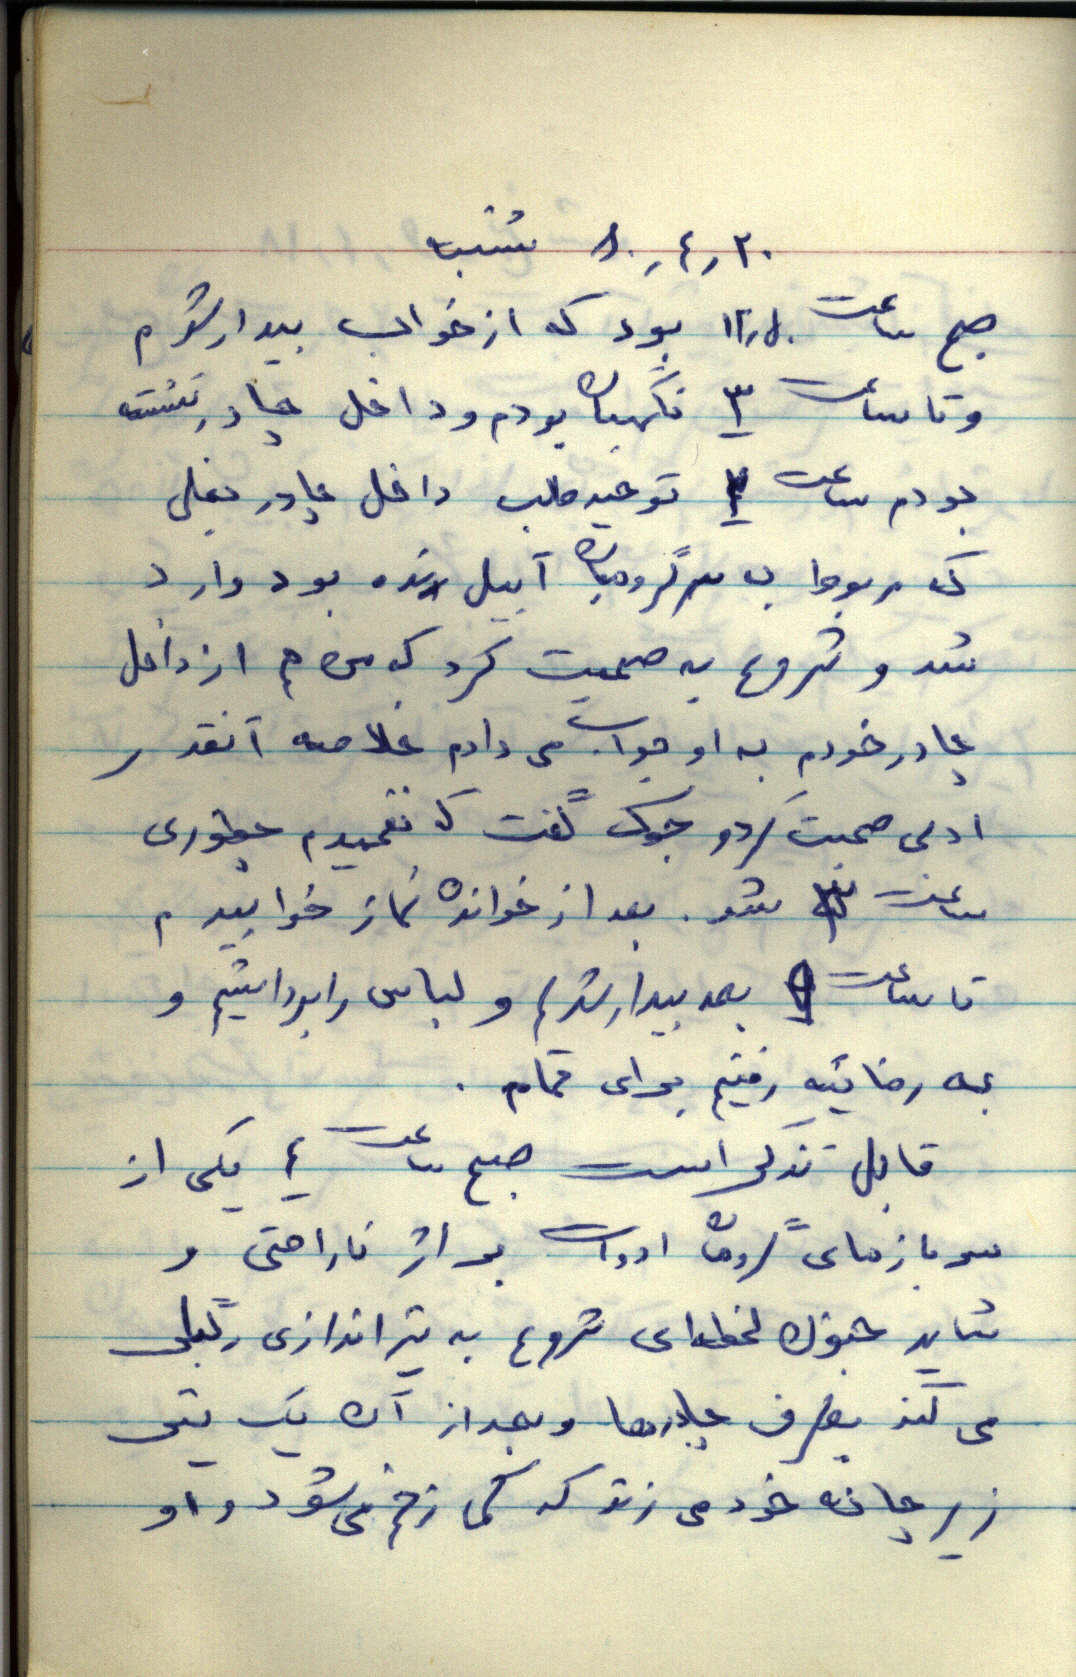 ۲۰ر٤ر شنبه
صبح ساعت بود که از خواب بیدار شدم
و تا ساعت ۳ نگهبان بودم و داخل چادر نشسته
بودم ساعت توحیدطلب داخل چادر بغلی
که مربوط به سرگروهبان آبیل زنده بود وارد
شد و شروع به صحبت کرد که من هم از داخل
چادر خودم به او جواب می دادم خلاصه آنقدر
صحبت کرد و جوک گفت که نفهمیدم چطوری
ساعت شد. بعد از خواندن نماز خوابیدم
تا ساعت بعد بیدار شدم و لباس را برداشتیم و
به رضائیه رفتیم برای حمام .
قابل تذکر است صبح ساعت ٤ یکی از
سربازهای گروهان ادوات بر اثر ناراحتی و
شاید جنون لحظه‌ای شروع به تیراندازی رگباری
می کند بطرف چادرها و بعد از آن یک تیر
زیر چانه خود می زند که کمی زخمی می‌شود و او